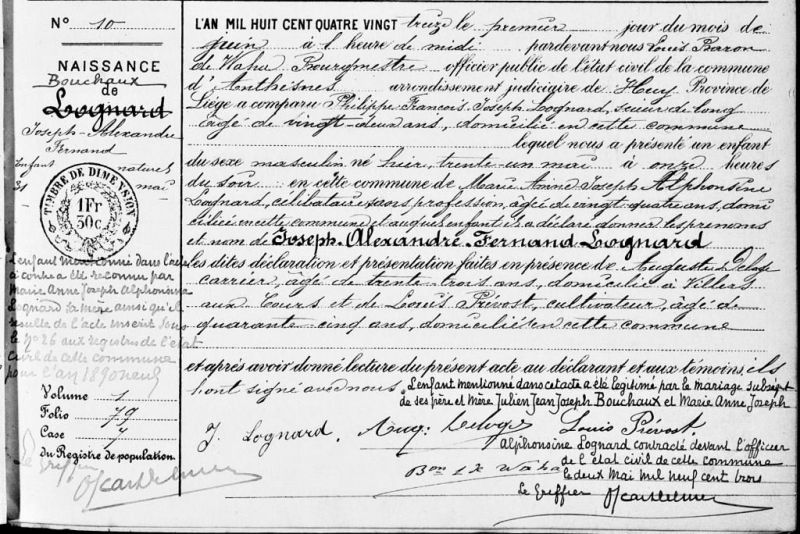 N° 10
NAISSANCE
Bouchaux
de
Lognard
Joseph-Alexandre
Fernand
Enfant naturel
31 mai
TIMBRE DE DIMENSION
1 Fr
30 c
L'enfant mentionné dans l'acte
ci-contre a été reconnu par
Marie Anne Joseph Alphonsine
Lognard sa mère ainsi qu'il
résulte de l'acte inscrit sous
le N° 26 aux registres de l'état
civil de cette commune
pour l'an 1890 neuf
Volume 1
Folio 79
Case 7
du Registre de population.
Le Greffier
L'AN MIL HUIT CENT QUATRE VINGT treize le premier jour du mois de
juin à l'heure de midi pardevant nous Louis Baron
de Waha Bourgmestre officier public de l'état civil de la commune
d'Anthisnes arrondissement judiciaire de Huy Province de
Liège a comparu Philippe François Joseph Lognard, scieur de long
âgé de vingt-deux ans, domicilié en cette commune
lequel nous a présenté un enfant
du sexe masculin né hier, trente un mai à onze heures
du soir en cette commune de Marie Anne Joseph Alphonsine
Lognard, célibataire sans profession, âgée de vingt quatre ans, domi
ciliée en cette commune et auquel enfant il a déclaré donner les prénoms
et nom de Joseph-Alexandre-Fernand Lognard
les dites déclaration et présentation faites en présence de Auguste
carrier, âgé de trente trois ans, domicilié à Villers
aux Tours et de Louis Prévost, cultivateur, âgé de
quarante cinq ans, domiciliés en cette commune
et après avoir donné lecture du présent acte au déclarant et aux témoins, ils
l'ont signé avec nous. L'enfant mentionné dans cet acte a été légitimé par le mariage subséqt
de ses père et mère Julien Jean Joseph Bouchaux et Marie Anne Joseph
J. Lognard. Aug: Louis Prévost.
Alphonsine Lognard contracté devant l'officier
Bon de Waha de l'état civil de cette commune
le deux Mai mil neuf cent trois
Le Greffier